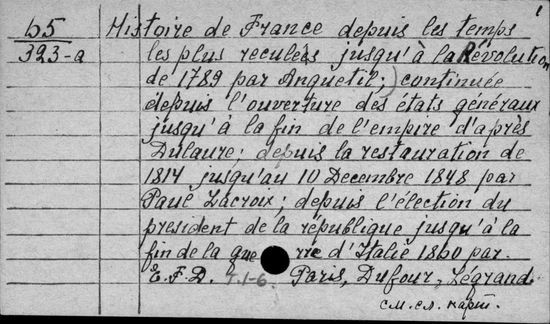 65 Histoire de France depuis les temps
323-a les plus reculées jusqu'à la Révolution
de 1789 par Anquetil;) continuée
depuis l'ouverture des états generaux
jusqu'à la fin de l'empire d'après
Dulaure; depuis la restauration de
1814 jusqu'au 10 Decembre 1848 par
Paul Lacroix; depuis l'élection du
president de la république jusqu'à la
fin de la guerre d'Italie 1860 par.
E.F.D. T.1-6. Paris, Dufour, Légrand
см. сл. карт.